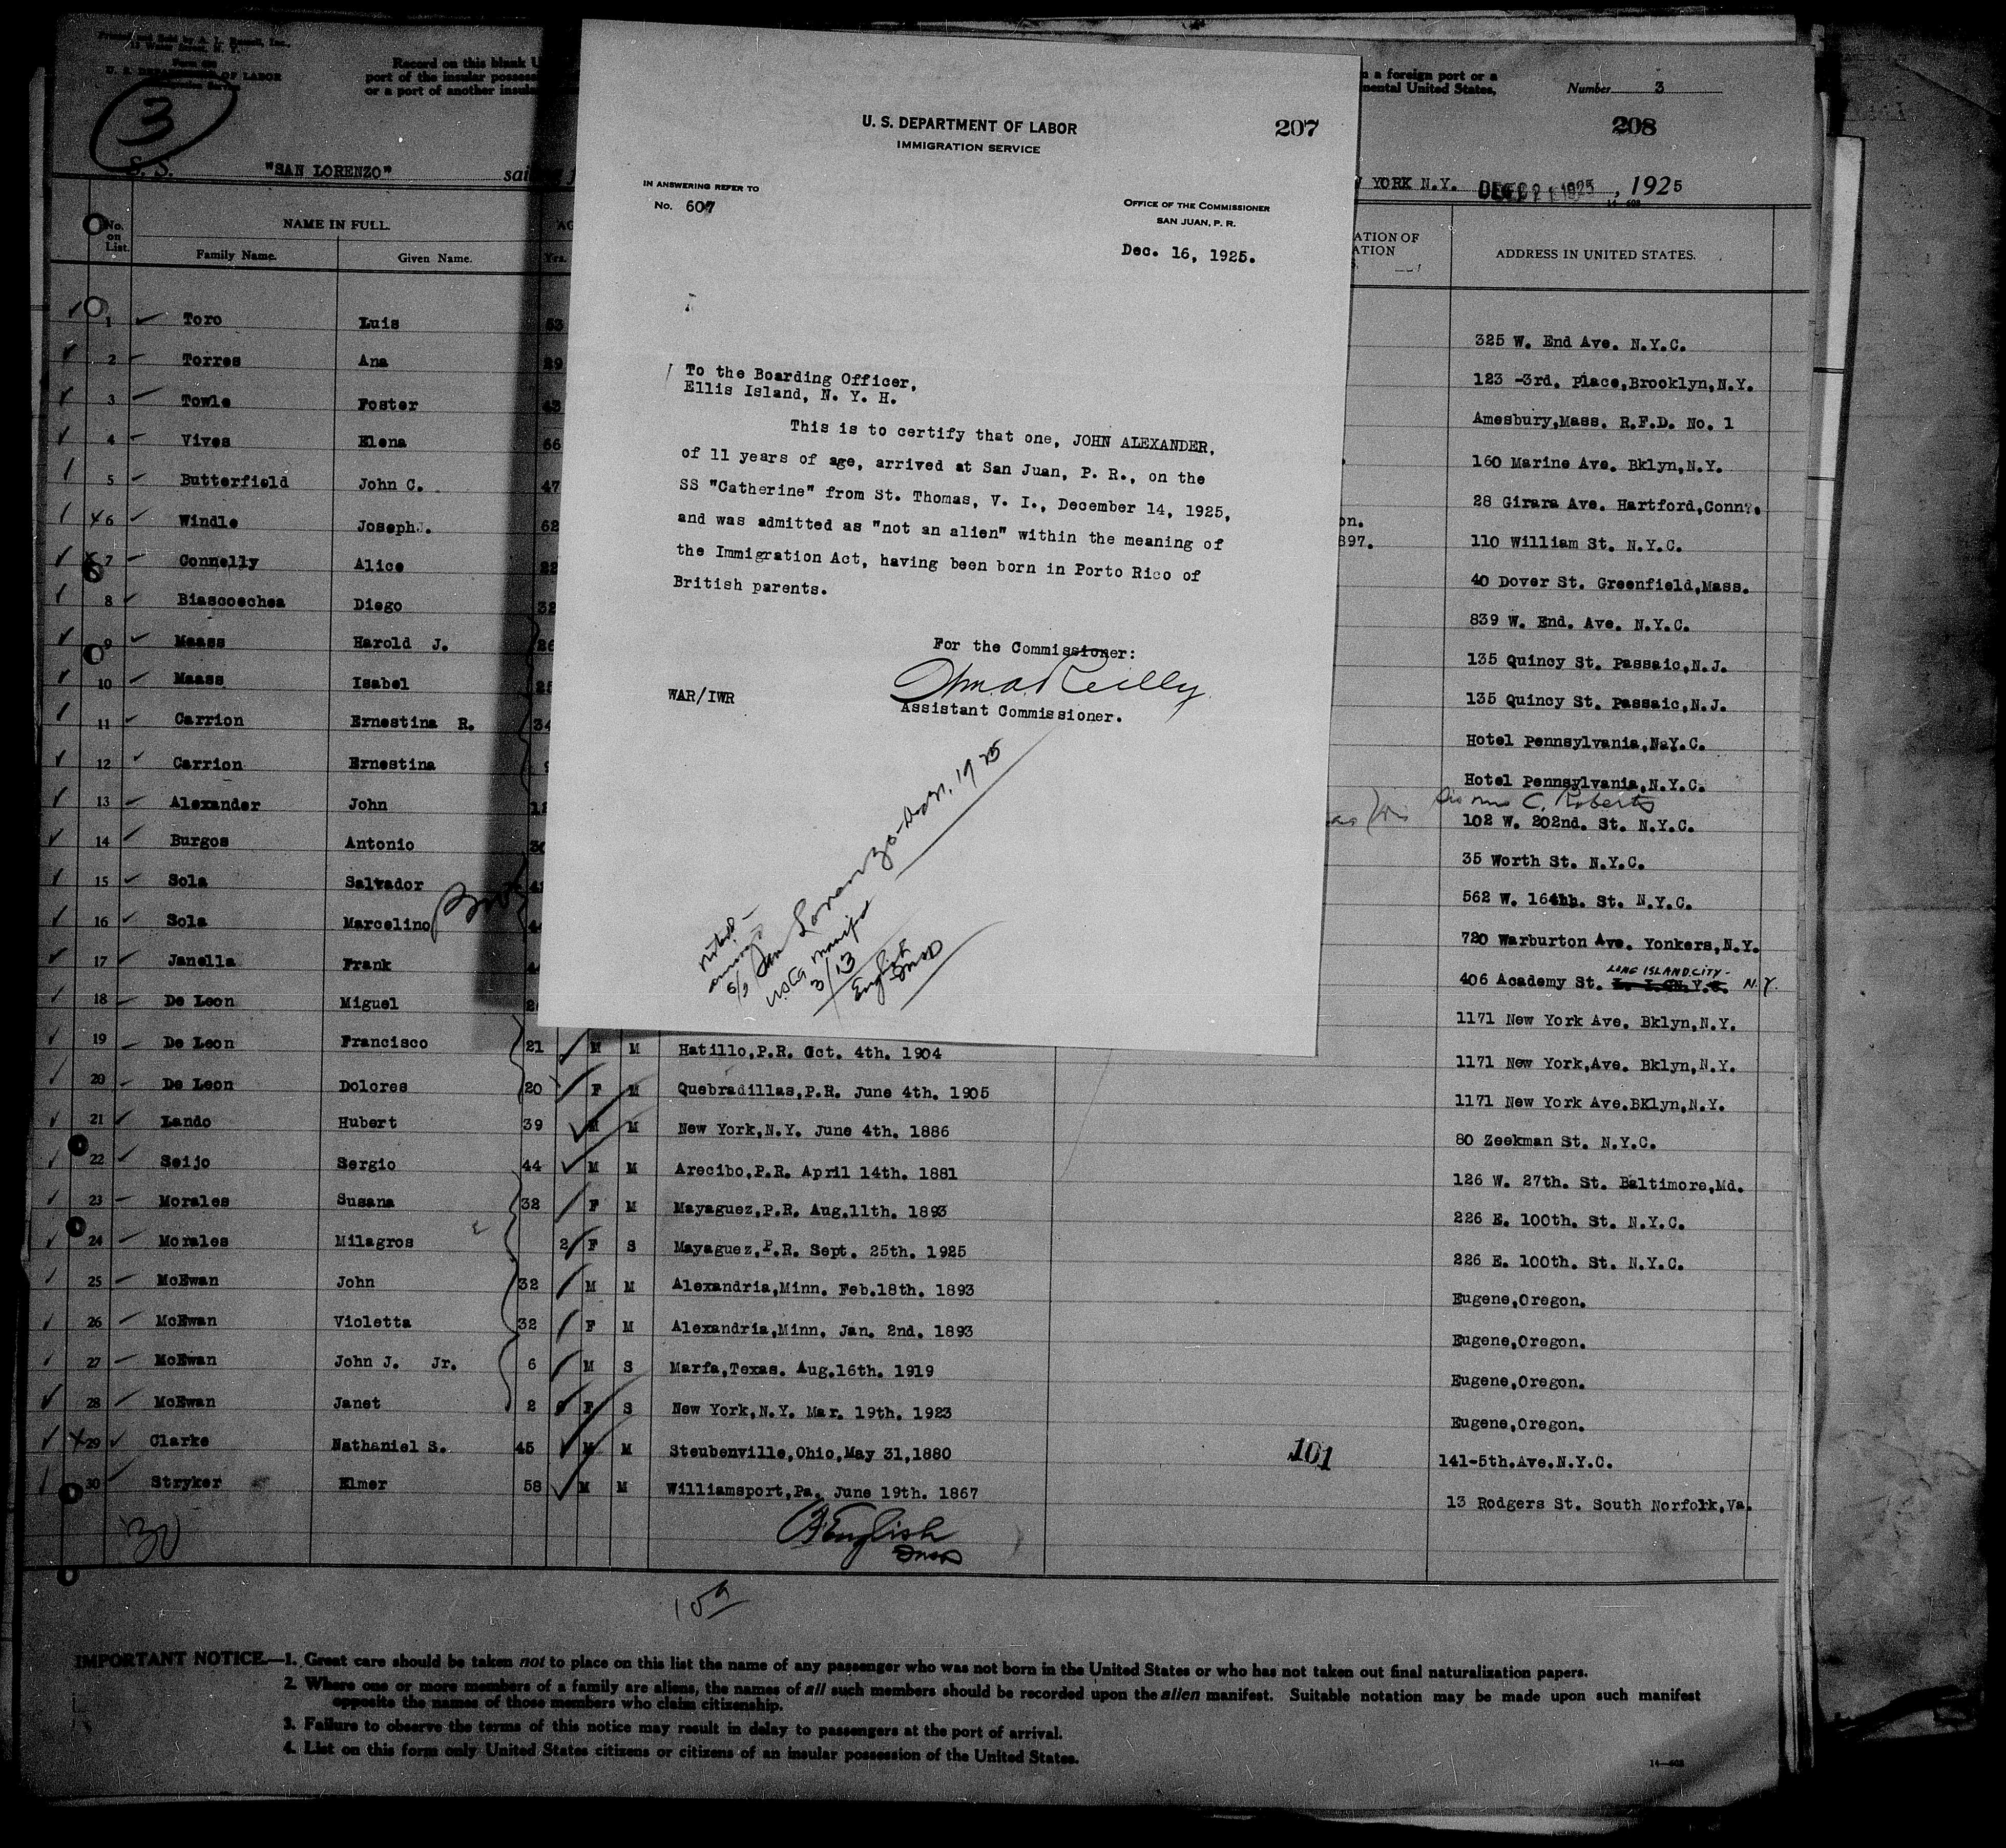 Form 630
U. S. DEPARTMENT OF LABOR
Immigration Service
Record on this blank U
port of the insular possess
or a port of another insula
a foreign port or a
nental United States,
Number 3
3
208
S. S. "SAN LORENZO" sai
YORK N.Y. DEC 1925, 1925
No. on List.
NAME IN FULL.
Family Name.
Given Name.
Yrs.
ATION OF
ATION
ADDRESS IN UNITED STATES.
U. S. DEPARTMENT OF LABOR
IMMIGRATION SERVICE
207
IN ANSWERING REFER TO
No. 607
OFFICE OF THE COMMISSIONER
SAN JUAN, P. R.
Dec. 16, 1925.
To the Boarding Officer,
Ellis Island, N. Y. H.
This is to certify that one, JOHN ALEXANDER,
of 11 years of age, arrived at San Juan, P. R., on the
SS "Catherine" from St. Thomas, V. I., December 14, 1925,
and was admitted as "not an alien" within the meaning of
the Immigration Act, having been born in Porto Rico of
British parents.
For the Commissioner:
Reilly
Assistant Commissioner.
WAR/IWR
San Lorenzo - 1925
USCQ manifest
3/13
English
1 Toro Luis 53 325 W. End Ave. N.Y.C.
2 Torres Ana 29 123 -3rd. Place,Brooklyn,N.Y.
3 Towle Foster 43 Amesbury,Mass. R.F.D. No. 1
4 Vives Elena 66 160 Marine Ave. Bklyn,N.Y.
5 Butterfield John C. 47 28 Girara Ave. Hartford,Conn.
6 Windle Joseph J. 62 on. 897. 110 William St. N.Y.C.
7 Connelly Alice 22 40 Dover St. Greenfield,Mass.
8 Biascoechea Diego 32 839 W. End. Ave. N.Y.C.
9 Maass Harold J. 26 135 Quincy St. Passaic,N.J.
10 Maass Isabel 25 135 Quincy St. Passaic,N.J.
11 Carrion Ernestina R. 34 Hotel Pennsylvania,N.Y.C.
12 Carrion Ernestina Hotel Pennsylvania,N.Y.C.
C. Roberts
13 Alexander John 11 102 W. 202nd. St. N.Y.C.
14 Burgos Antonio 30 35 Worth St. N.Y.C.
15 Sola Salvador 562 W. 164th. St. N.Y.C.
16 Sola Marcelino 720 Warburton Ave. Yonkers,N.Y.
17 Janella Frank 406 Academy St. LONG ISLAND CITY - N.Y.
18 De Leon Miguel 1171 New York Ave. Bklyn,N.Y.
19 De Leon Francisco 21 M M Hatillo,P.R. Oct. 4th. 1904 1171 New York,Ave. Bklyn,N.Y.
20 De Leon Dolores 20 F M Quebradillas,P.R. June 4th. 1905 1171 New York Ave.BKlyn,N.Y.
21 Lando Hubert 39 M M New York,N.Y. June 4th. 1886 80 Zeekman St. N.Y.C.
22 Seijo Sergio 44 M M Arecibo,P.R. April 14th. 1881 126 W. 27th. St. Baltimore,Md.
23 Morales Susana 32 F M Mayaguez,P.R. Aug.11th. 1893 226 E. 100th. St. N.Y.C.
24 Morales Milagros 2 F S Mayaguez,P.R. Sept. 25th. 1925 226 E. 100th. St. N.Y.C.
25 McEwan John 32 M M Alexandria,Minn. Feb.18th. 1893 Eugene,Oregon.
26 McEwan Violetta 32 F M Alexandria,Minn. Jan. 2nd. 1893 Eugene,Oregon.
27 McEwan John J. Jr. 6 M S Marfa,Texas. Aug.16th. 1919 Eugene,Oregon.
28 McEwan Janet 2 F S New York,N.Y. Mar. 19th. 1923 Eugene,Oregon.
29 Clarke Nathaniel S. 45 M M Steubenville,Ohio,May 31,1880 101 141-5th.Ave.N.Y.C.
30 Stryker Elmer 58 M M Williamsport,Pa. June 19th. 1867 13 Rodgers St. South Norfolk,Va.
30
English
IMPORTANT NOTICE.—1. Great care should be taken not to place on this list the name of any passenger who was not born in the United States or who has not taken out final naturalization papers.
2. Where one or more members of a family are aliens, the names of all such members should be recorded upon the alien manifest. Suitable notation may be made upon such manifest
opposite the names of those members who claim citizenship.
3. Failure to observe the terms of this notice may result in delay to passengers at the port of arrival.
4. List on this form only United States citizens or citizens of an insular possession of the United States.